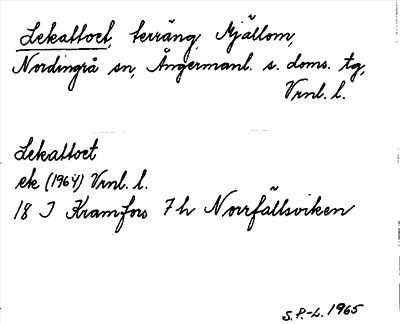 Lekattoet, terräng, Mjällom,
Nordingrå sn, Ångermanl. s. doms. tg,
Vrnl. l.
Lekattoet
ek (1964) Vrnl. l.
18 J Kramfors 7h Norrfällsviken
S.P.-L. 1965